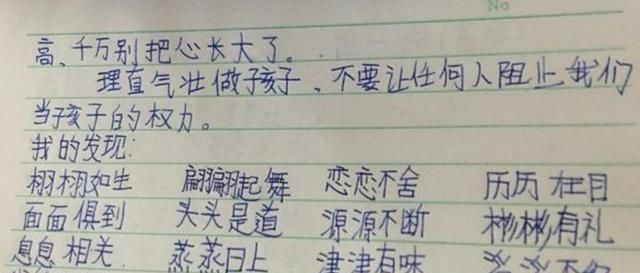 No
高,千万别把心长大了。
理直气壮做孩子,不要让任何人阻止我们
当孩子的权力。
我的发现:
栩栩如生 翩翩起舞 恋恋不舍 历历在目
面面俱到 头头是道 源源不断 彬彬有礼
息息相关 蒸蒸日上 津津有味